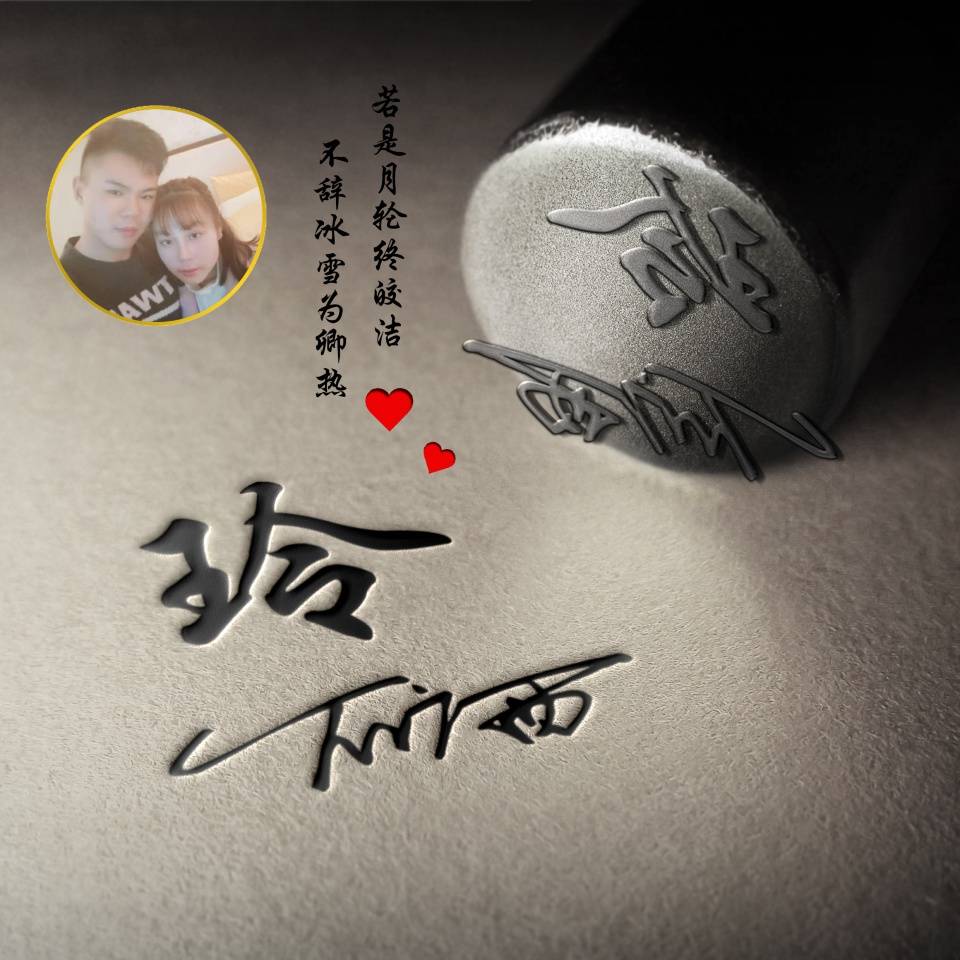 若是月轮终皎洁
不辞冰雪为卿热
玲